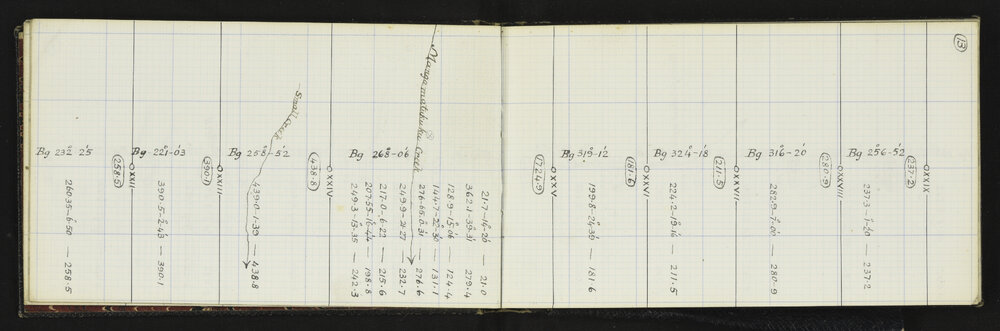 13
Bg 232° 25'
260.35-6.50 — 258.5
258.5
O XXII
Bg 221°-03'
390.5-2°-43' — 390.1
390.1
O XXIII
Small Creek
Bg 258°-52'
439.0-1-30 — 438.8
438.8
O XXIV
Creek
Bg 268°-06'
249.3-13-35 — 242.3
207.55-16-44 — 198.8
217.0-6-22 — 215.6
249.9-21-27 — 232.7
276.65-0-31 — 276.6
144.7-22-30 — 131.1
128.9-15-06 — 124.4
362.1-39-31 — 279.4
21.7-14-26 — 21.0
1724.9
O XXV
Bg 319°-12'
199.8-24-39 — 181.6
181.6
O XXVI
Bg 324°-18'
224.2-19-14 — 211.5
211.5
O XXVII
Bg 316°-20'
282.9-7-00 — 280.9
280.9
O XXVIII
Bg 256°-52'
237.3-1-20 — 237.2
237.2
O XXIX